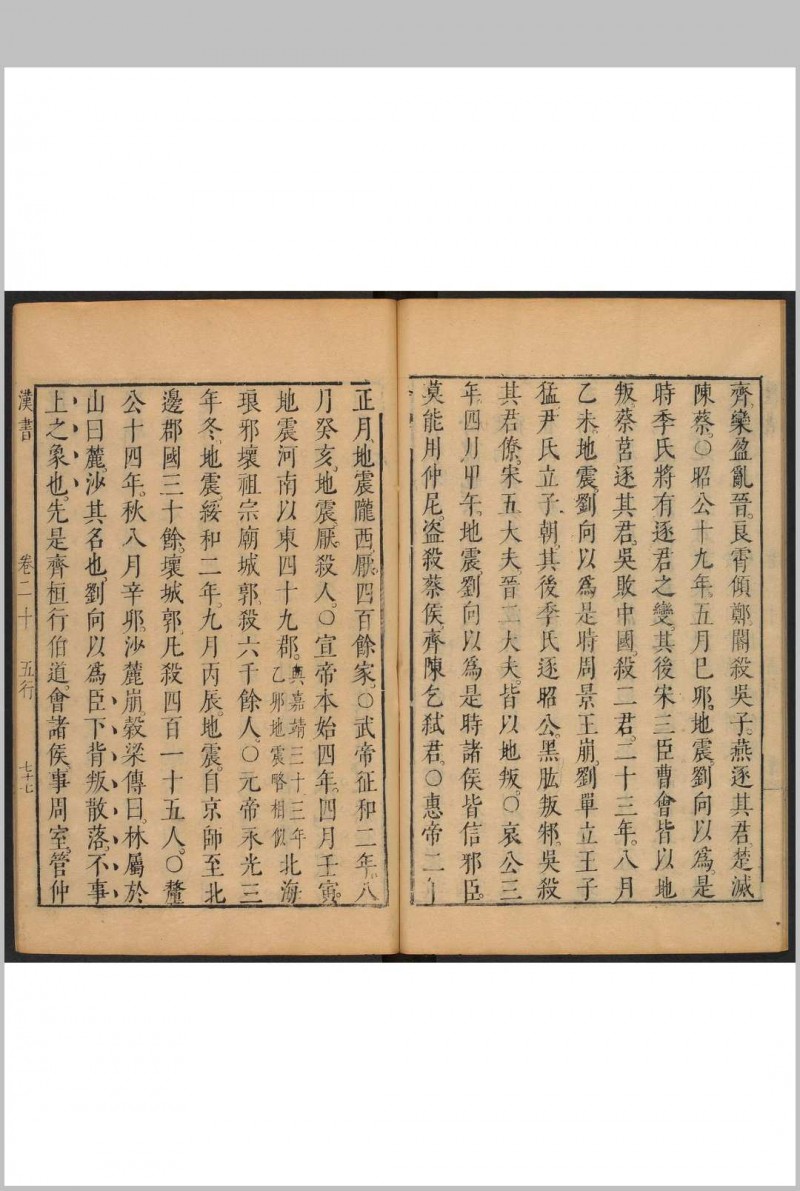 齊欒盈亂晉。良霄傾鄭。閽殺吳子。燕逐其君。楚滅
陳蔡。○昭公十九年。五月己卯。地震。劉向以爲。是
時季氏將有逐君之變。其後宋三臣曹會皆以地
叛。蔡莒逐其君。吳敗中國。殺二君。二十三年。八月
乙未。地震。劉向以爲。是時周景王崩。劉單立王子
猛。尹氏立子朝。其後季氏逐昭公。黑肱叛邾。吳殺
其君僚。宋五大夫。晉二大夫。皆以地叛。○哀公三
年。四月甲午。地震。劉向以爲。是時諸侯皆信邪臣。
莫能用仲尼。盜殺蔡侯。齊陳乞弑君。○惠帝二年
正月。地震隴西。厭四百餘家。○武帝征和二年。八
月癸亥。地震。厭殺人。○宣帝本始四年。四月壬寅。
地震河南以東四十九郡。與嘉靖三十三年乙卯地震略相似北海
琅邪壞祖宗廟城郭。殺六千餘人。○元帝永光三
年冬。地震。綏和二年。九月丙辰。地震。自京師至北
邊郡國三十餘。壞城郭。凡殺四百一十五人。○釐
公十四年。秋八月辛卯。沙麓崩。穀梁傳曰。林屬於
山曰麓。沙其名也。劉向以爲臣下背叛。散落。不事
上之象也。先是齊桓行伯道。會諸侯。事周室。管仲
漢書 卷二十 五行 七十七